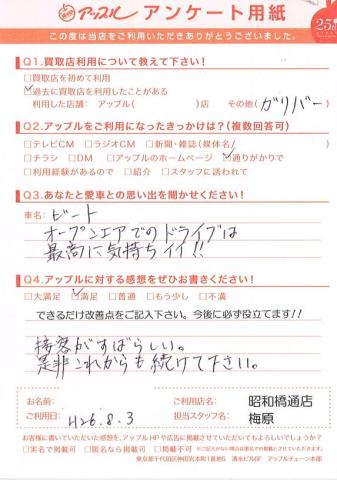 アップル アンケート用紙
25th
この度は当店をご利用いただきありがとうございました。
Q1.買取店利用について教えて下さい!
□買取を初めて利用
☑過去に買取を利用したことがある
利用した店舗: アップル( )店 その他(ガリバー)
Q2.アップルをご利用になったきっかけは?(複数回答可)
□テレビCM □ラジオCM □新聞・雑誌(媒体名/ )
□チラシ □DM □アップルのホームページ ☑通りがかりで
□利用経験があるので □紹介 □スタッフに誘われて
Q3.あなたと愛車との思い出を聞かせください!
車名: ビート
オープンエアでのドライブは
最高に気持ちイイ!!
Q4.アップルに対する感想をぜひお書きください!
□大満足 ☑満足 □普通 □もう少し □不満
できるだけ改善点をご記入下さい。今後に必ず役立てます!!
接客がすばらしい。
是非これからも続けて下さい。
お名前:
ご利用店名: 昭和橋通店
ご利用日: H26.8.3
担当スタッフ名: 梅原
お客様に書いていただいた感想を、アップルHPや広告に掲載させていただいてもよろしいでしょうか?
□実名で掲載可 □匿名なら掲載可 □掲載不可 (※ご記入がない場合は匿名での掲載とさせていただきます。)
東京都千代田区神田岩本町1番地5 清水ビル6F アップルチェーン本部